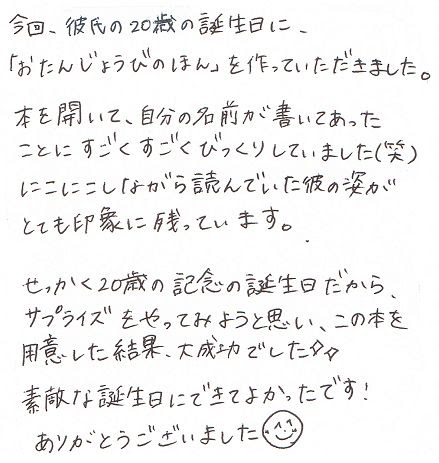 今回、彼氏の20歳の誕生日に、
「おたんじょうびのほん」を作っていただきました。
本を開いて、自分の名前が書いてあった
ことにすごくすごくびっくりしていました(笑)
にこにこしながら読んでいた彼の姿が
とても印象に残っています。
せっかく20歳の記念の誕生日だから、
サプライズをやってみようと思い、この本を
用意した結果、大成功でした☆☆
素敵な誕生日にできてよかったです!
ありがとうございました